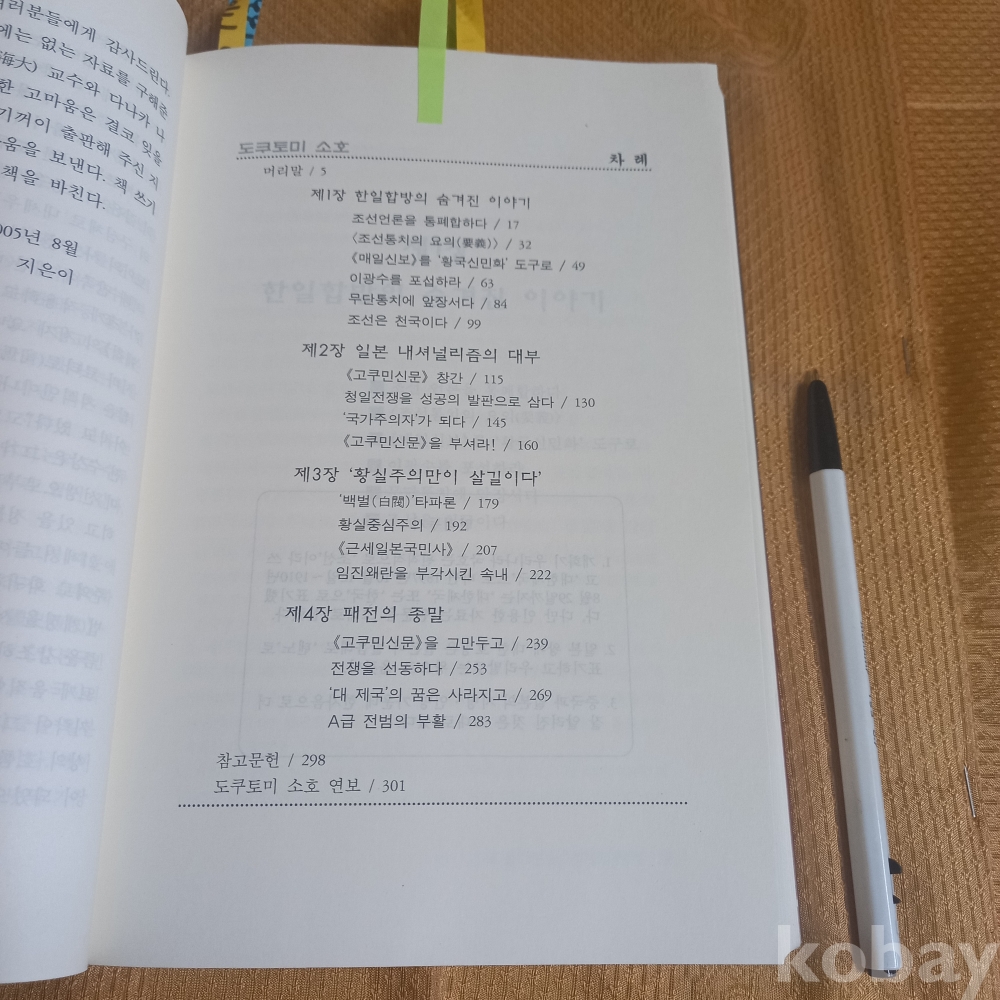 여러분들에게 감사드린다.
에는 없는 자료를 구해준
海大) 교수와 다나카 나
한 고마움은 결코 잊을
기꺼이 출판해 주신 지
마움을 보낸다. 책 쓰기
책을 바친다.
2005년 8월
지은이
도쿠토미 소호
차 례
머리말 / 5
제1장 한일합방의 숨겨진 이야기
조선언론을 통폐합하다 / 17
〈조선통치의 요의(要義)〉 / 32
《매일신보》를 '황국신민화' 도구로 / 49
이광수를 포섭하라 / 63
무단통치에 앞장서다 / 84
조선은 천국이다 / 99
제2장 일본 내셔널리즘의 대부
《고쿠민신문》 창간 / 115
청일전쟁을 성공의 발판으로 삼다 / 130
'국가주의자'가 되다 / 145
《고쿠민신문》을 부셔라! / 160
제3장 '황실주의만이 살길이다'
'백벌(白閥)'타파론 / 179
황실중심주의 / 192
《근세일본국민사》 / 207
임진왜란을 부각시킨 속내 / 222
제4장 패전의 종말
《고쿠민신문》을 그만두고 / 239
전쟁을 선동하다 / 253
'대 제국'의 꿈은 사라지고 / 269
A급 전범의 부활 / 283
참고문헌 / 298
도쿠토미 소호 연보 / 301
kobay